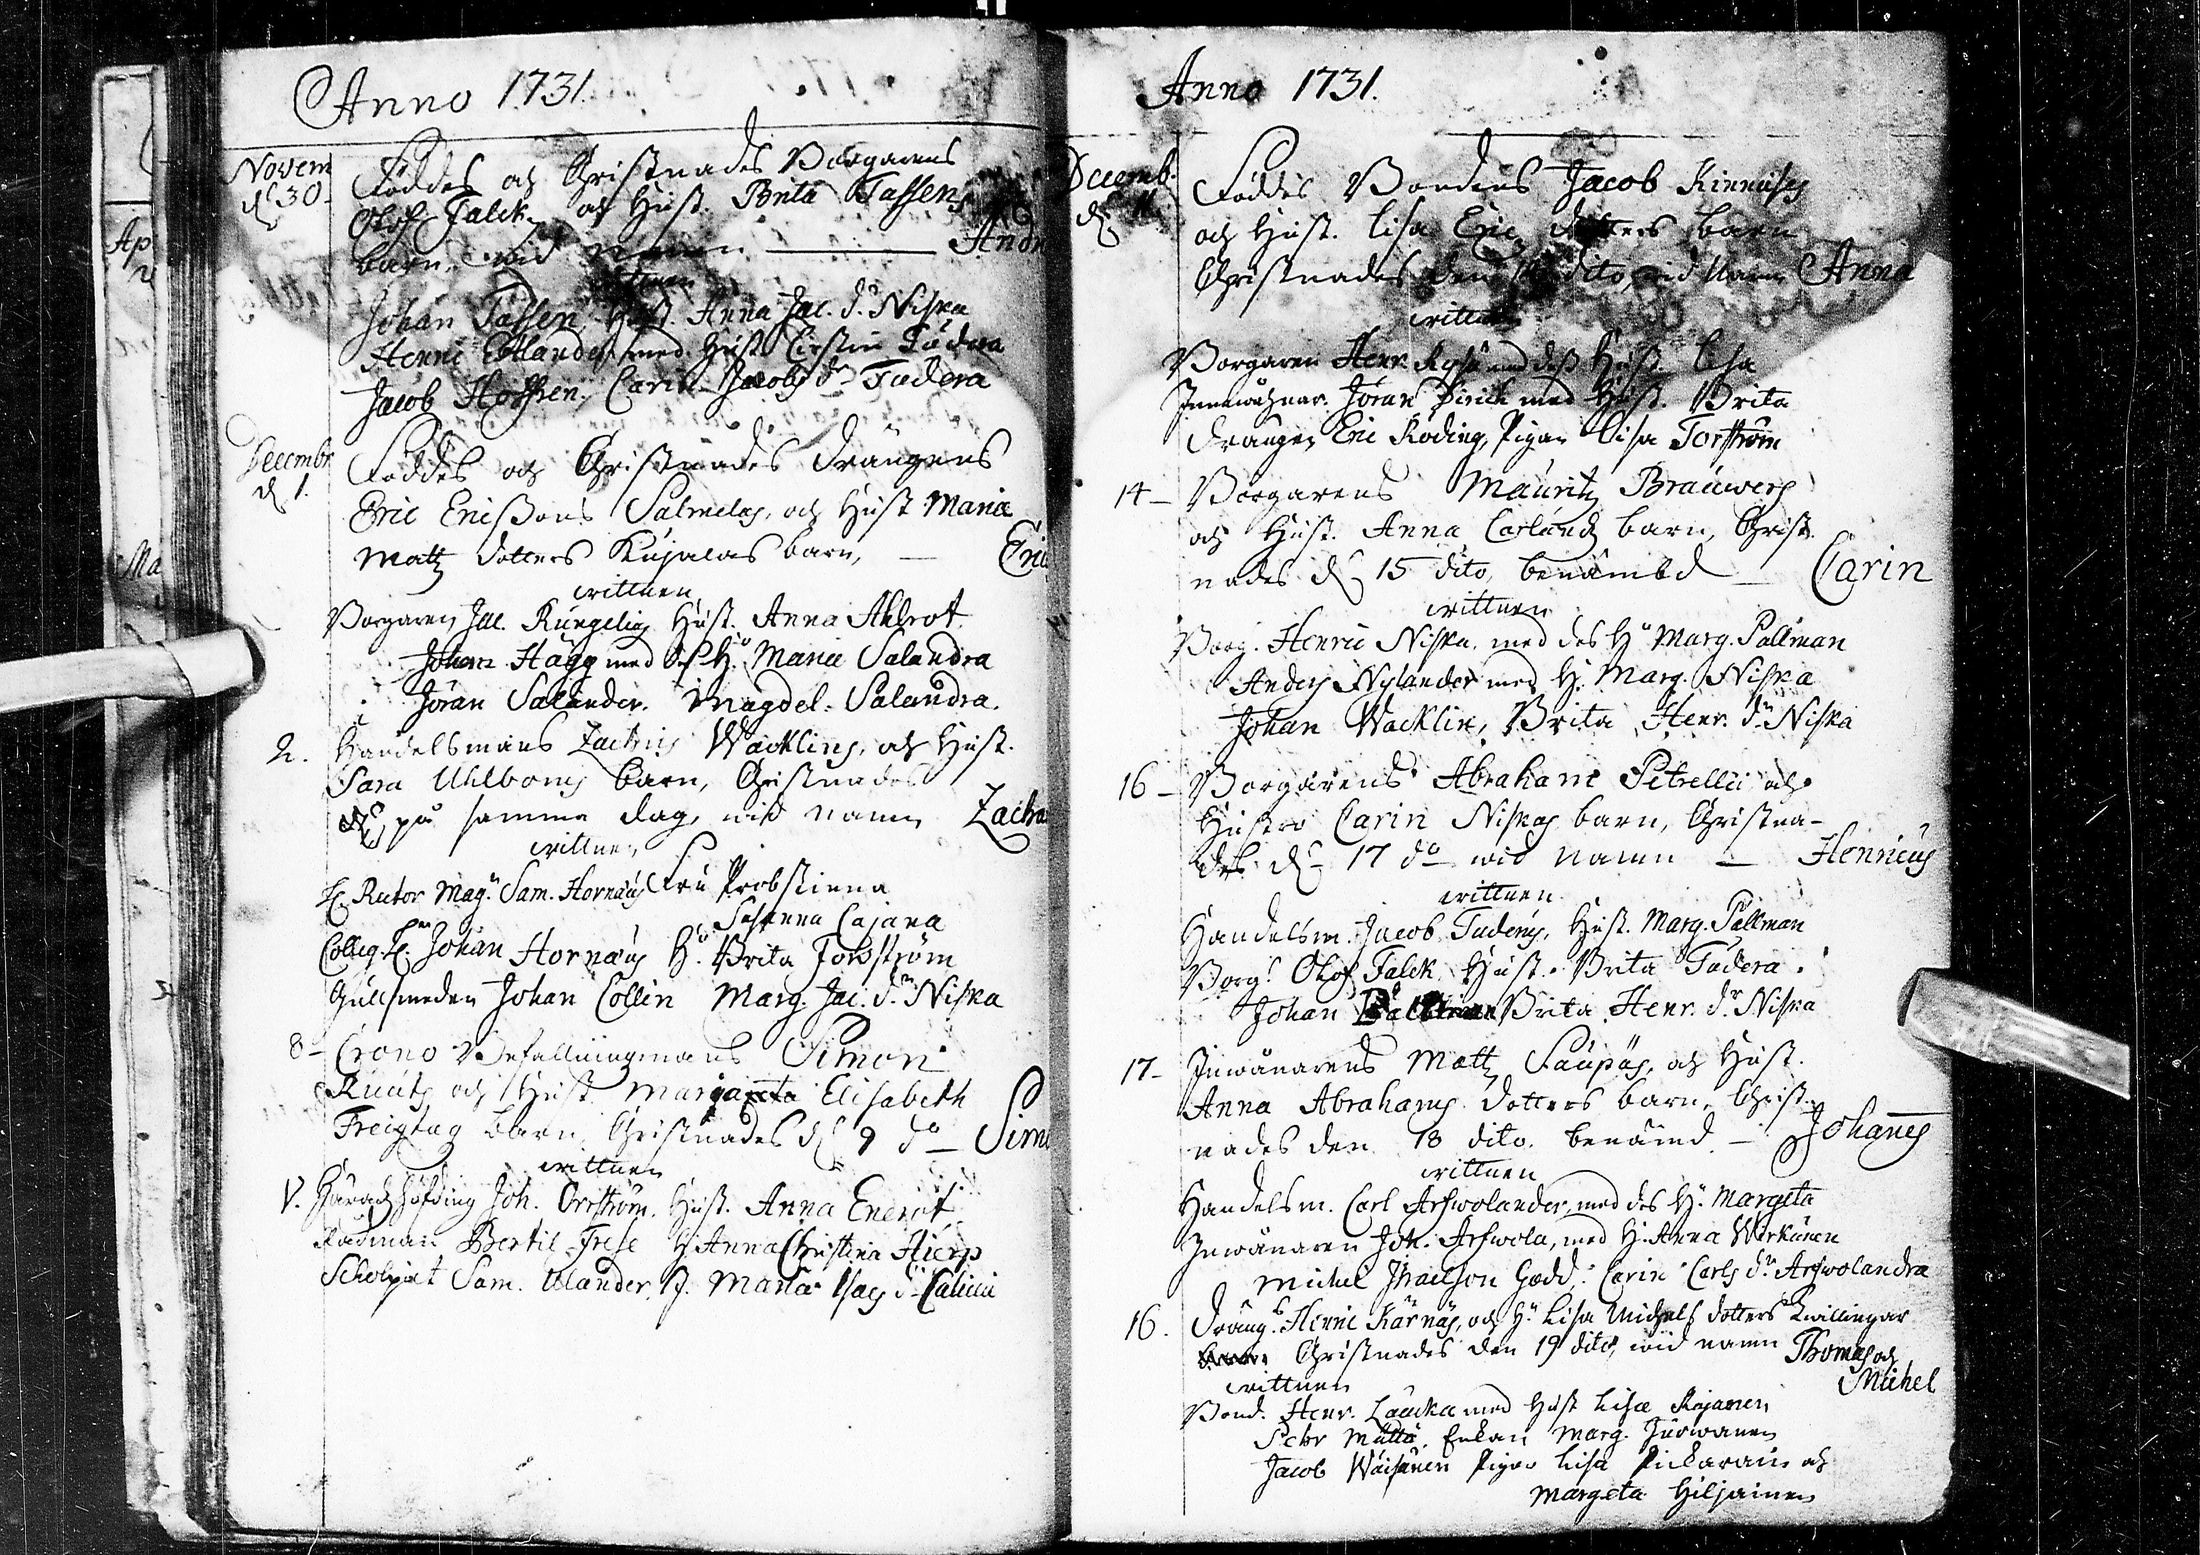 Anno 1731.
Novem
d. 30.
Föddes och Christnades Borgarens
Olof Falck och Hust. Brita Tassens
barn wid namn — And
wittnen
Johan Tassen, Hust. Anna Jac. dr. Niska
Henric Ektlander med Hust. Cirstin Tudera
Jacob Hoffren, Carin Jacobs dr Tudera
Decembr
d. 1.
Föddes och Christnades drängens
Eric Erichssons Salmelas, och Hust Maria
Matz dotters Kujalas barn, — Eric
wittnen
Borgaren Jac. Rungelius Hust. Anna Ahlrot
Johan Hägg med des H. Maria Salandra
Jöran Salander. Magdel. Salandra.
2. Handelsmans Zachris Wacklins, och Hust.
Sara Uhlboms barn, Christnades
på samma dag, wid namn Zacha
wittnen
H. Rector Mag. Sam. Hornæus Fru Probstinna
Susanna Cajana
Colleg. H. Johan Hornæus H. Brita Forsström
Gullsmeden Johan Collin Marg. Jac. dr. Niska
8 – Crono Befallningmans Simon
Kruuts och Hust. Margareta Elisabeth
Freigtag barn, Christnades d. 9 do – Sim
wittnen
V. Häradzhöfding Joh. Orrström. Hust. Anna Enerot
Rådman Bertil Frese H. Anna Christina Hierp
Scholpiat Sam. Ulander, J. Maria Isacs dr Calicia
Anno 1731.
Decemb.
d.
Föddes Bondens Jacob Kinnuises
och Hust. Lisa Erics dotters barn
Christnades den dito, wid namn Anna
wittnen
Borgaren Henr. med dess Hust. Lisa
Innewåhnar. Jöran med Hust. Brita
drängen Eric Röding, Pigan Lisa Torström
14 – Borgarens Mauritz Brauwers
och Hust. Anna Carlunds barn, Christ-
nades d. 15 dito, benämbd – Carin
wittnen
Borg. Henric Niska, med des Hu Marg. Pallman
Anders Nylander med H. Marg. Niska
Johan Wacklin, Brita Henr. dr Niska
16 – Borgarens Abraham Petrellii och
Hustro Carin Niskas barn, Christna-
des d. 17 do wid namn — Henricus
wittnen
Handelsm. Jacob Tuderus, Hust. Marg. Pallman
Borg. Olof Falck Hust. Brita Tudera.
Johan Brita Henr. dr. Niska
17 – Inwånarens Matz Saupas, och Hust.
Anna Abrahams dotters barn, Christ-
nades den 18 dito. benämd – Johanes
wittnen
Handelsm. Carl Arfwolander, med des Hu. Margeta
Inwånaren Joh. Arfwola, med H. Anna Werkunen
Michel Isacsson Gædd. Carin Carls dr. Arfwolandra
16. dräng. Henric Kärnäs, och Hu Lisa Michels dotters twillingar
Christnades den 19 dito, wid namn Thomas och
wittnen Michel
Bond. Henr. Laucka med Hust Lisa Kajanen
Pehr Mätta. Enkan Marg. Jurwanen
Jacob Wäisänen Pigan Lisa Pickarain och
Margeta Hiljainen